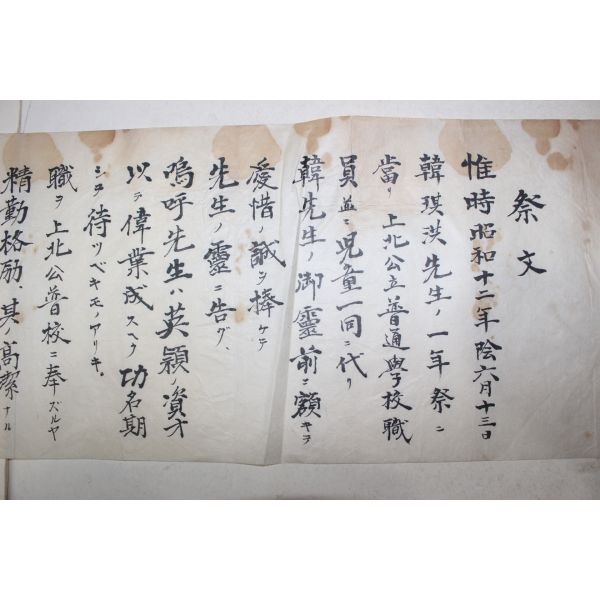 祭文
惟時昭和十二年陰六月十三日
韓琪洪先生ノ一年祭ニ
當リ上北公立普通學校職
員並ニ児童一同ニ代リ
韓先生ノ御靈前ニ額キヲ
愛惜ノ誠ヲ捧ゲテ
先生ノ靈ニ告グ、
嗚呼先生ハ英穎ノ資才
以テ偉業成スヘク功名期
シテ待ツベキモノアリキ。
職ヲ上北公普校ニ奉ズルヤ
精勤格励、其高潔ナル